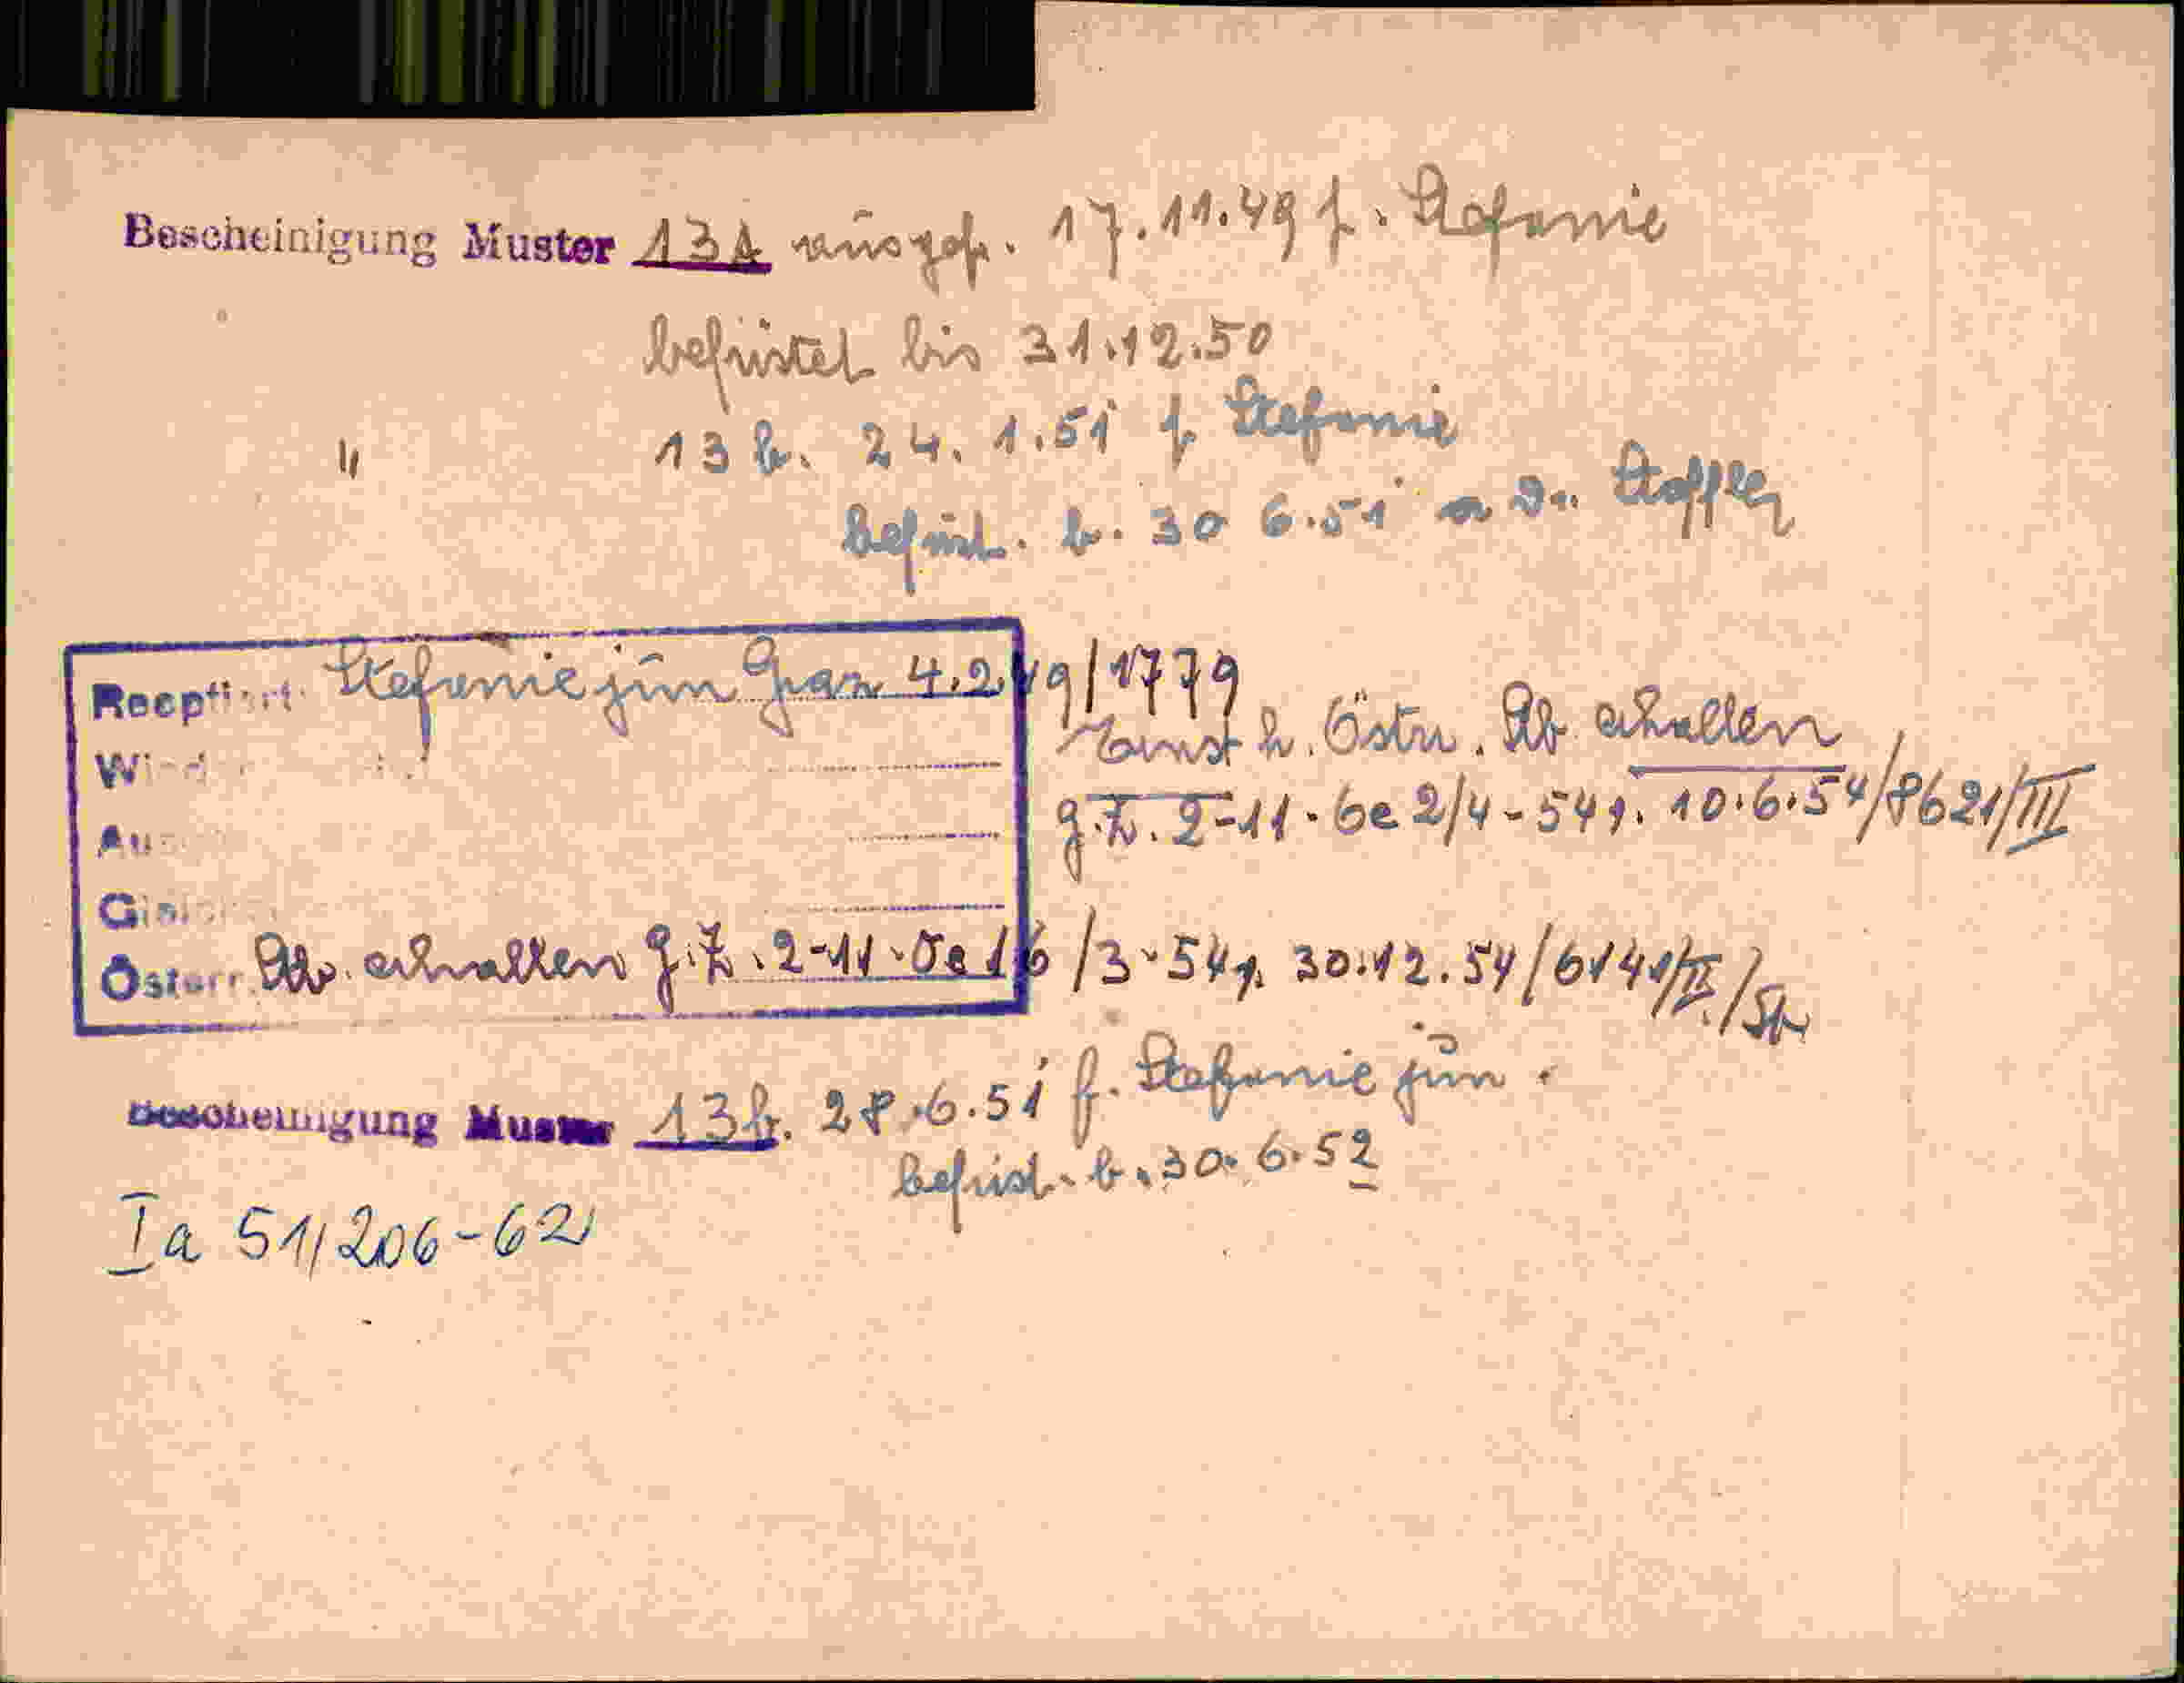 Bescheinigung Muster 13A ausgef. 17.11.49 f. Stefanie
befristet bis 31.12.50
" 13 b. 24. 1.51 f. Stefanie
befrist. b. 30 6.51
Stefanie jun Graz 4.2.49/1779
h. Östr. Stb erhalten
g.Z. 2-11. 6e 2/4-54 v. 10.6.54/8621/III
Österr. Stb. erhalten g.Z. 2-11. Oe 16/3-54 v. 30.12.54/6141/II/St
Bescheinigung Muster 13b. 28.6.51 f. Stefanie jun.
befrist. b. 30.6.52
Ia 51/206-62